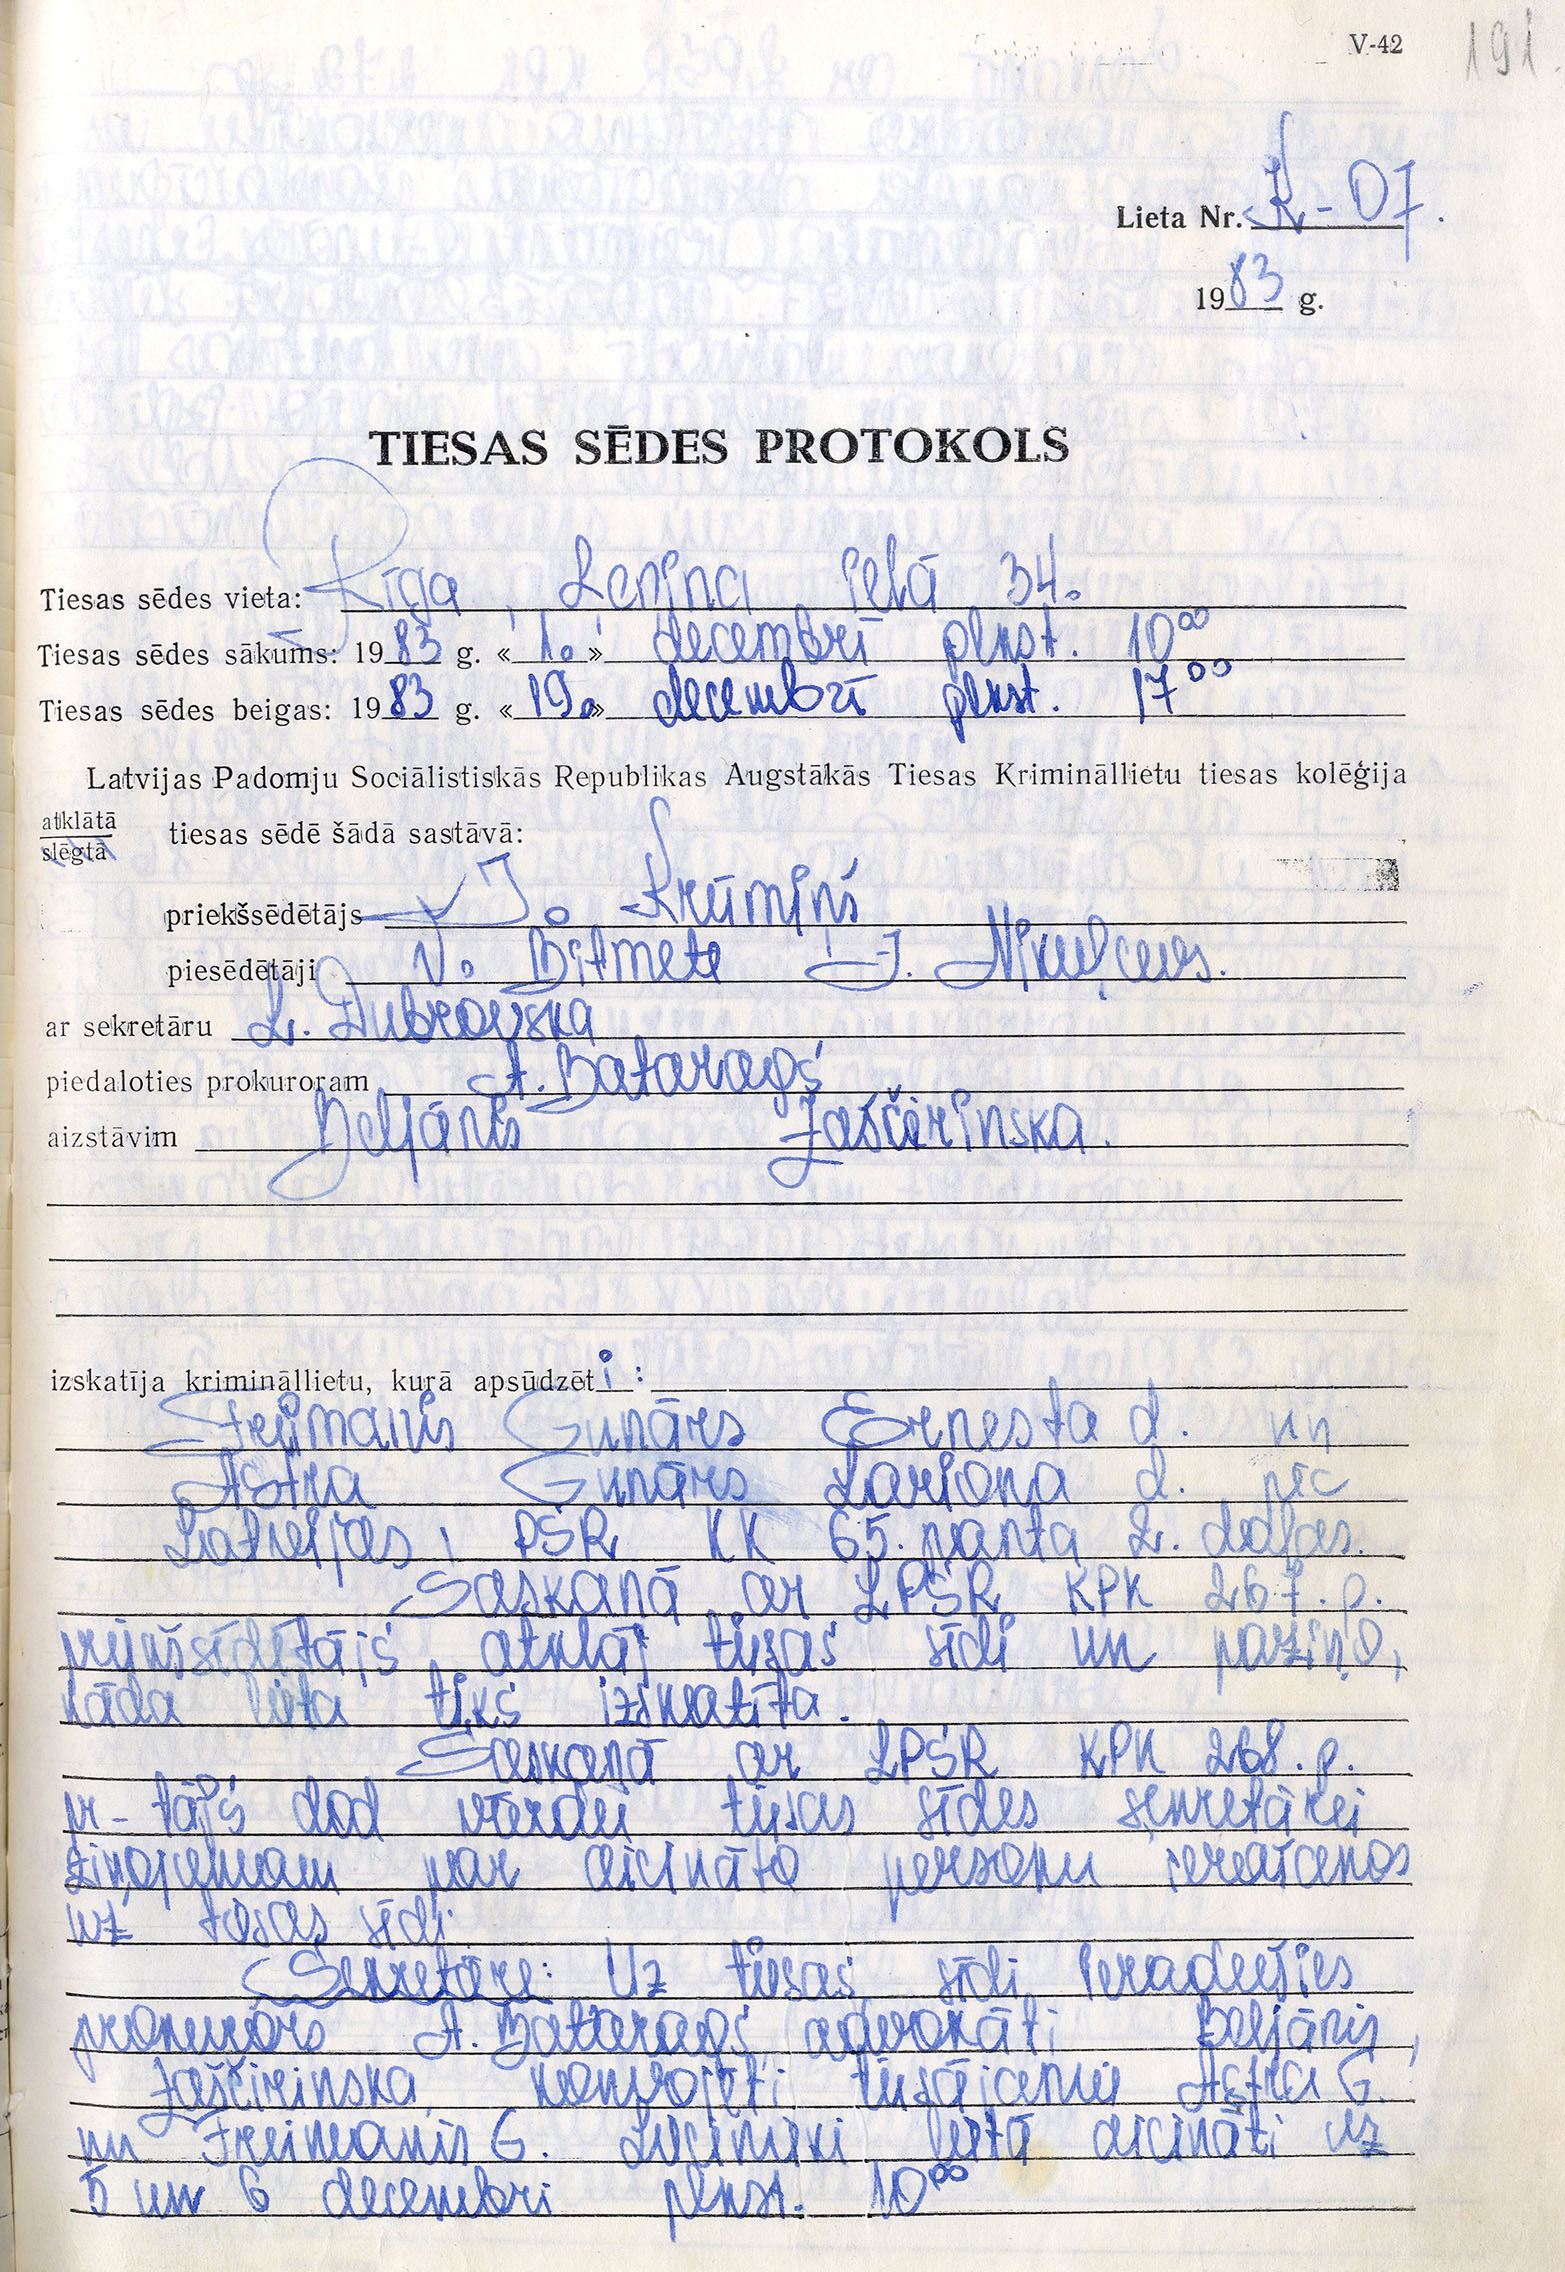 V-42
191.
Lieta Nr. K-07.
1983 g.
TIESAS SĒDES PROTOKOLS
Tiesas sēdes vieta: Rīga, Ļeņina ielā 34.
Tiesas sēdes sākums: 1983 g. «1.» decembrī plkst. 10⁰⁰
Tiesas sēdes beigas: 1983 g. «19.» decembrī plkst. 17⁰⁰
Latvijas Padomju Sociālistiskās Republikas Augstākās Tiesas Krimināllietu tiesas kolēģija
atklātā
slēgtā
tiesas sēdē šādā sastāvā:
priekšsēdētājs J. Krūmiņš
piesēdētāji V. Bitmete I. Nikuļcevs.
ar sekretāru L. Dubrovska
piedaloties prokuroram A. Bataragš
aizstāvim Beljānis Jaščerinska.
izskatīja krimināllietu, kurā apsūdzēti:
Freimanis Gunārs Ernesta d. un
Astra Gunārs Lariona d. pēc
Latvijas PSR KK 65. panta 2. daļas.
Saskaņā ar LPSR KPK 267. p.
priekšsēdētājs atklāj tiesas sēdi un paziņo,
kāda lieta tiks izskatīta.
Saskaņā ar LPSR KPK 268. p.
pr-tājs dod vārdu tiesas sēdes sekretārei
ziņojumam par aicināto personu ierašanos
uz tiesas sēdi.
Sekretāre: Uz tiesas sēdi ieradušies
prokurors A. Bataragš, advokāti Beljānis,
Jaščirinska, konvojēti tiesājamie Astra G.
un Freimanis G. Liecinieki lietā aicināti uz
5 un 6 decembri plkst. 10⁰⁰